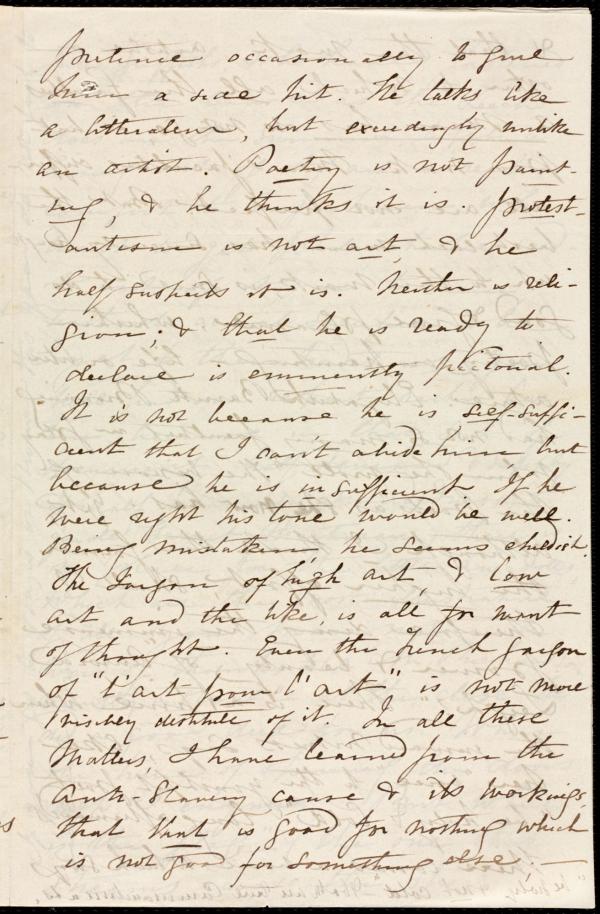 pretence occasionally to give
him a side hit. He talks like
a litterateur, but exceedingly unlike
an artist. Poetry is not paint-
ing, & he thinks it is. Protest-
antism is not art, & he
half suspects it is. Neither is reli-
gion; & that he is ready to
declare is eminently pictorial.
It is not because he is self-suffi-
cient that I can't abide him, but
because he is insufficient. If he
were right his tone would be well.
Being mistaken, he seems childish.
The Jargon of high art, & low
art and the like, is all for want
of thought. Even the French jargon
of "l'art pour l'art", is not more
visibly destitute of it. In all these
matters, I have learned from the
Anti-Slavery cause & its workings,
that that is good for nothing which
is not good for something else; —